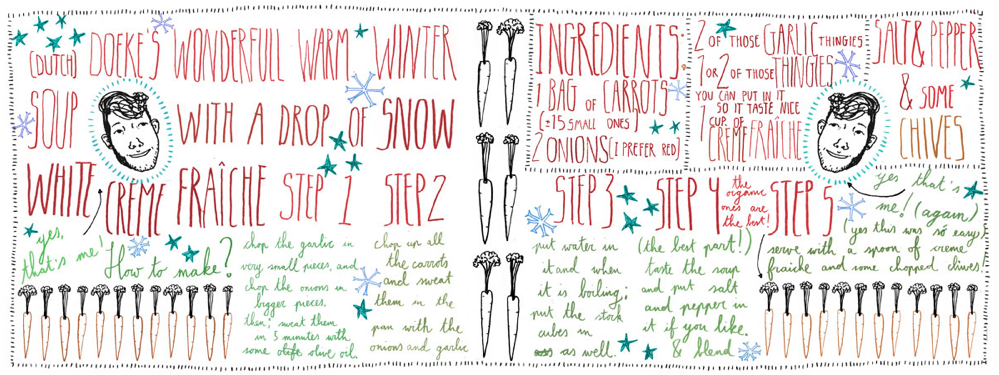 (DUTCH) DOEKE'S WONDERFULL WARM WINTER
SOUP WITH A DROP OF SNOW
WHITE CREME FRAÎCHE
yes,
that's me!
How to make?
STEP 1
chop the garlic in
very small pieces, and
chop the onions in
bigger pieces.
then; sweat them
in 5 minutes with
some olive oil.
STEP 2
chop up all
the carrots
and sweat
them in the
pan with the
onions and garlic
INGREDIENTS:
1 BAG OF CARROTS
(±15 SMALL ONES)
2 ONIONS (I PREFER RED)
2 OF THOSE GARLIC THINGIES
1 OR 2 OF THOSE THINGIES
YOU CAN PUT IN IT
SO IT TASTE NICE
1 CUP OF CREME FRAÎCHE
SALT & PEPPER
& SOME
CHIVES
STEP 3
put water in
it and when
it is boiling;
put the stock
cubes in
as well.
STEP 4
(the best part!)
taste the soup
and put salt
and pepper in
it if you like.
& blend
the
organic
ones are
the best!
STEP 5
yes that's
me! (again)
(yes this was so easy)
serve with a spoon of creme
fraiche and some chopped chives.